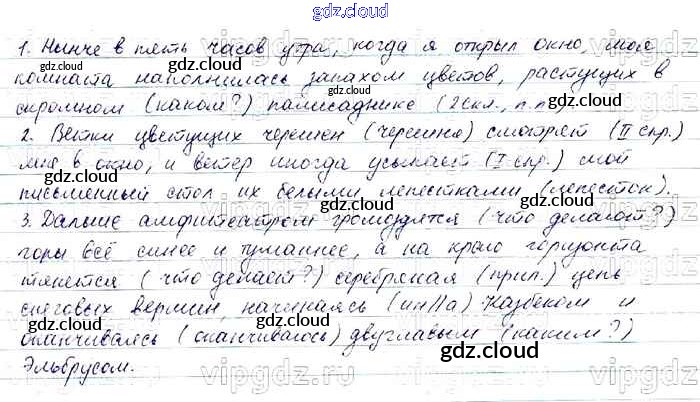 gdz.cloud
1. Нынче в пять часов утра, когда я открыл окно, моя
комната наполнилась запахом цветов, растущих в
скромном (каком?) палисаднике (2 скл., п.п.)
2. Ветки цветущих черешен (черешня) смотрят (II спр.)
мне в окно, и ветер иногда усыпает (I спр.) мой
письменный стол их белыми лепестками (лепесток).
3. Дальше амфитеатром громоздятся (что делают?)
горы всё синее и туманнее, а на краю горизонта
тянется (что делает?) серебряная (прил.) цепь
снеговых вершин, начинаясь (ин//а) Казбеком и
оканчиваясь (оканчиваюсь) двуглавым (каким?)
Эльбрусом.